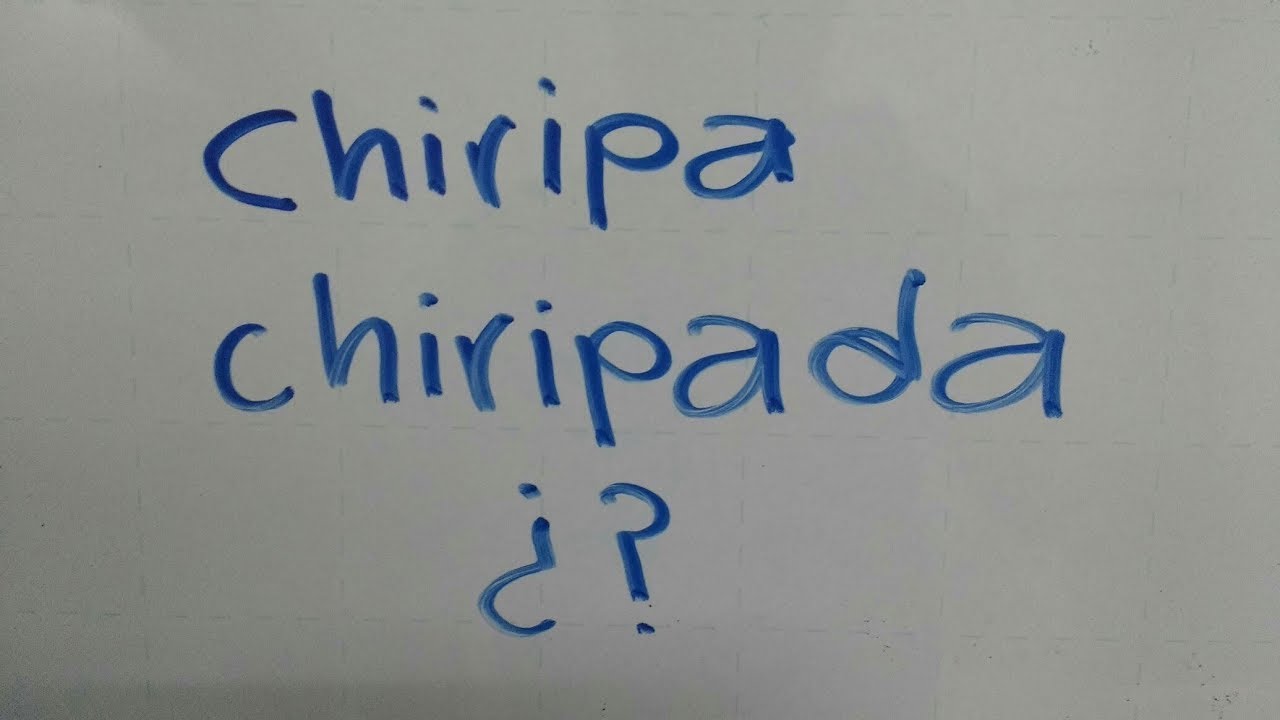 chiripa
chiripada
¿?